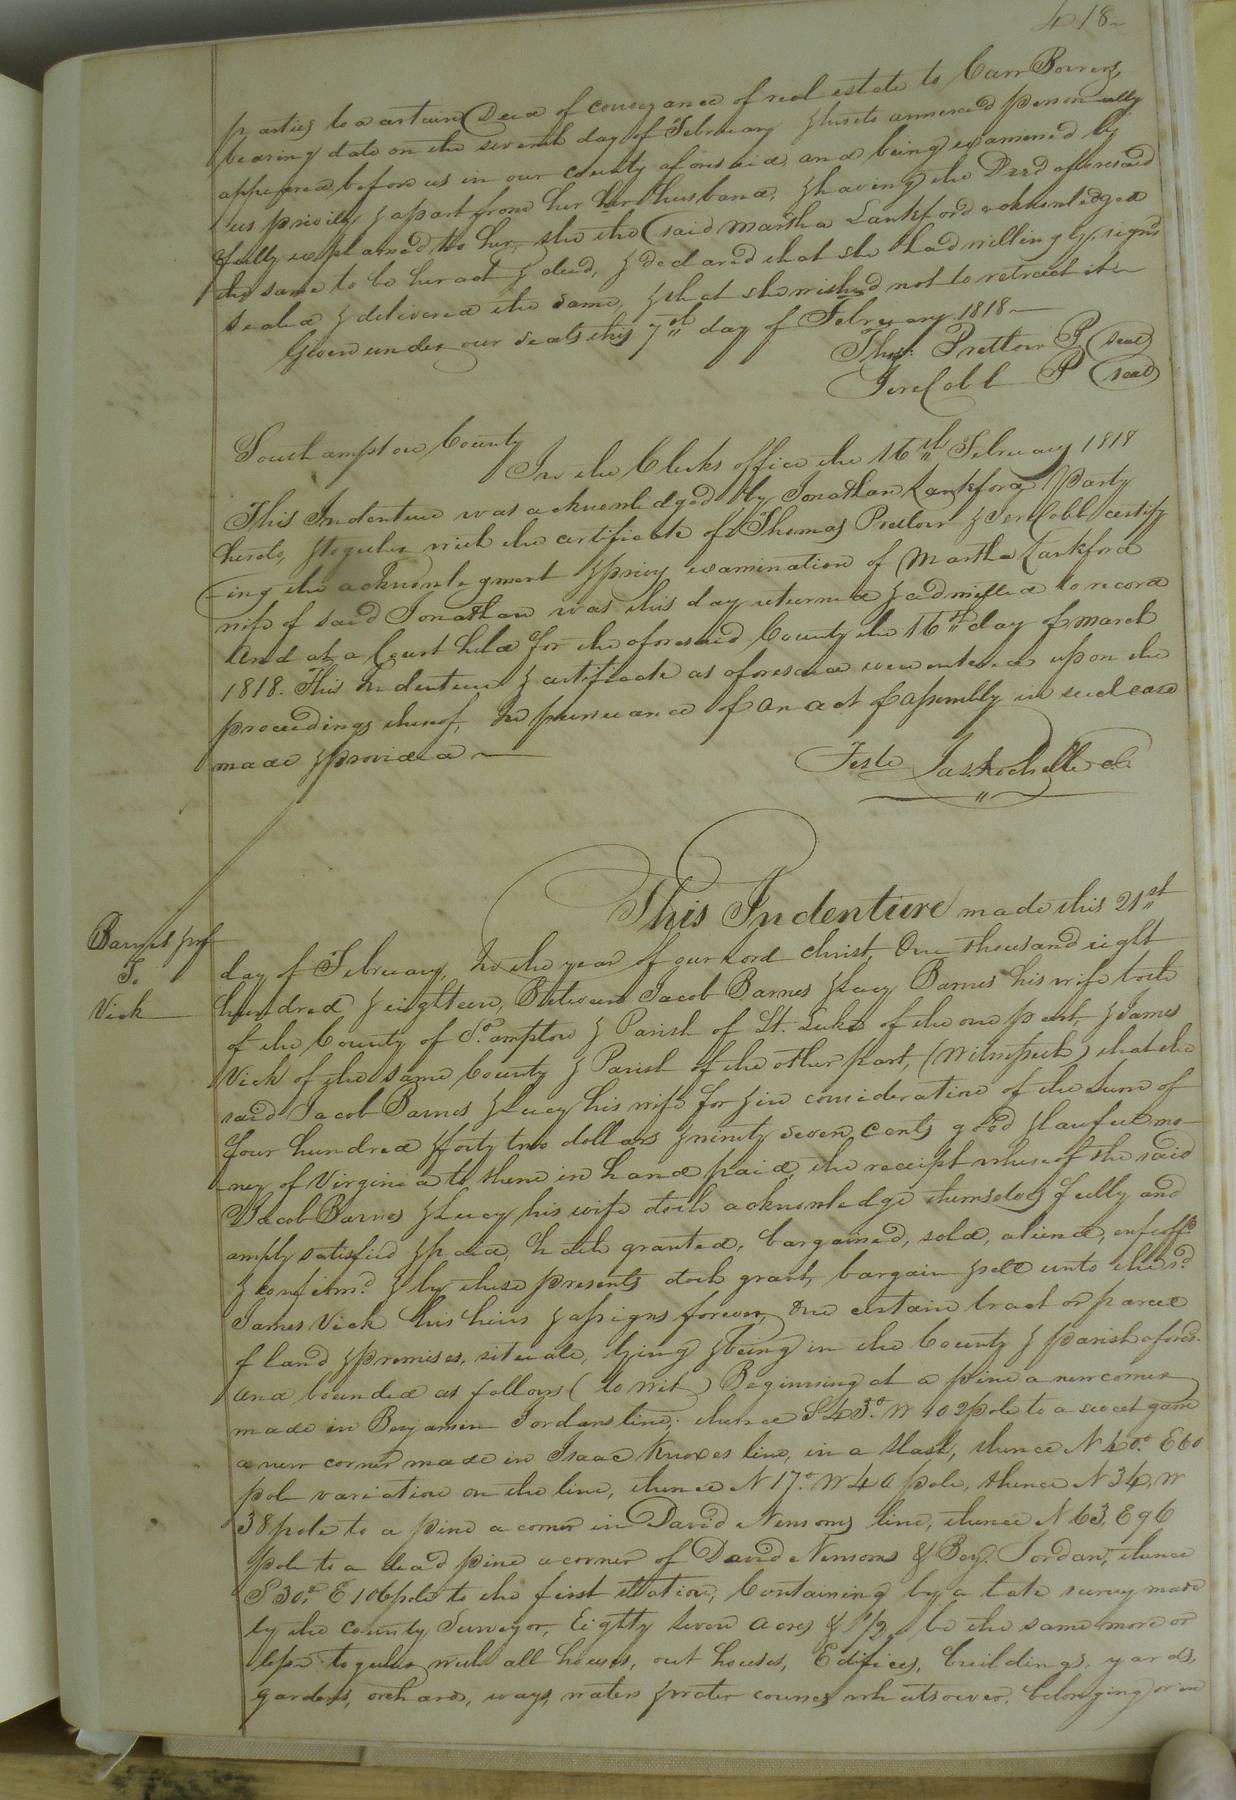 418
parties to a certain Deed of conveyance of real estate to Carr Bowers,
bearing date on the seventh day of February & hereto annexed personally
appeared before us in our county aforesaid, and being examined by
us privily & apart from her her husband, & having the Deed aforesaid
fully explained to her, she the said Martha Lankford acknowledged
the same to be her act & deed, & declared that she had willingly sign'd
sealed & delivered the same, & that she wished not to retract it
Given under our seals this 7th day of February 1818
Thos: Pretlow P (seal)
Jere Cobb P (seal)
Southampton County
In the Clerks office the 16th February 1818
This Indenture was acknowledged by Jonathan Lankford Party
hereto, & together with the certificate of Thomas Pretlow & Jere Cobb certify
ing the acknowlegment & privy examination of Martha Lankford
wife of said Jonathan was this day returned & admitted to record
And at a Court held for the aforesaid County the 16th day of March
1818. This Indenture & certificate as aforesaid were entered upon the
proceedings thereof, In pursuance of an act of assembly in such case
made & provided
Teste Jas. Rochelle cl.
This Indenture made this 21st
Barnes & wf
To
Vick
day of February, In the year of our Lord Christ, One thousand eight
hundred & eighteen, Between Jacob Barnes & Lucy Barnes his wife both
of the County of So.ampton & Parish of St. Lukes of the one part, & James
Vick of the same County & Parish of the other part, (Witnesseth) that the
said Jacob Barnes & Lucy his wife for & in consideration of the sum of
four hundred & forty two dollars & ninety seven cents good & lawful mo-
ney of Virginia to them in hand paid, the receipt whereof the said
Jacob Barnes & Lucy his wife doth acknowledge themselves fully and
amply satisfied & paid, hath granted, bargained, sold, aliened, enfeoff'd
& confirm'd & by these presents doth grant, bargain & sell unto the sd.
James Vick his heirs & assigns forever, One certain tract or parcel
of land & premises, situate, lying & being in the County & parish afores.
and bounded as follows (to wit) Beginning at a pine a new corner
made in Benjamin Jordans line, thence S 43° W 102 pole to a sweet gum
a new corner made in Isaac Knoxes line, in a slash, thence N 40° E 60
pole variation on the line, thence N 17° W 40 pole, thence N 34, W
38 pole to a pine a corner in David Newsoms line, thence N 63, E 96
pole to a dead pine a corner of David Newsoms & Benj. Jordan, thence
S 30° E 106 pole to the first station, Containing by a late survey made
by the County Surveyor, Eighty seven acres & 1/2 be the same more or
less together with all houses, out houses, Edifices, buildings, yards,
gardens, orchards, ways, waters & water courses whatsoever, belonging or in